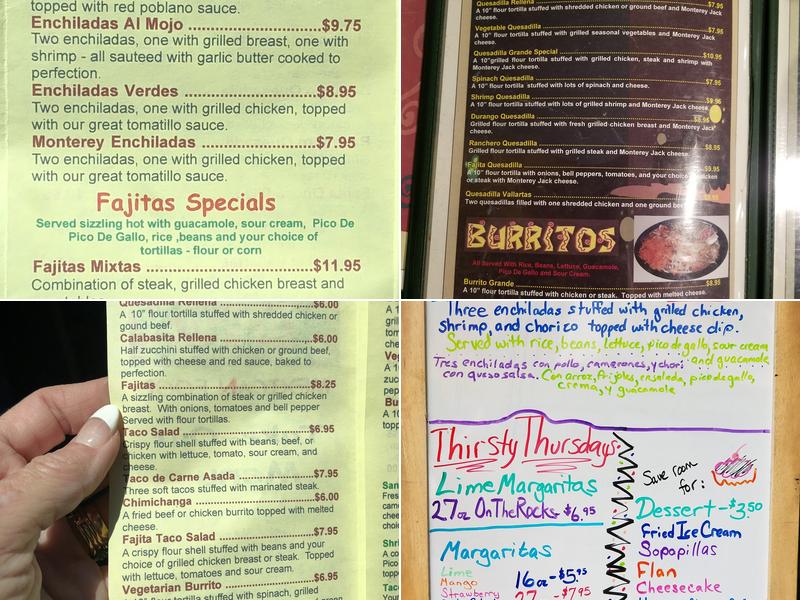 topped with red poblano sauce.
Enchiladas Al Mojo ...................$9.75
Two enchiladas, one with grilled breast, one with
shrimp - all sauteed with garlic butter cooked to
perfection.
Enchiladas Verdes .......................$8.95
Two enchiladas, one with grilled chicken, topped
with our great tomatillo sauce.
Monterey Enchiladas ....................$7.95
Two enchiladas, one with grilled chicken, topped
with our great tomatillo sauce.
Fajitas Specials
Served sizzling hot with guacamole, sour cream, Pico De
Pico De Gallo, rice ,beans and your choice of
tortillas - flour or corn
Fajitas Mixtas ............................$11.95
Combination of steak, grilled chicken breast and
Quesadilla Rellena $7.95
A 10" flour tortilla stuffed with shredded chicken or ground beef and Monterey Jack
cheese.
Vegetable Quesadilla $7.95
A 10" flour tortilla stuffed with grilled seasonal vegetables and Monterey Jack
cheese.
Quesadilla Grande Special $10.95
A 10"grilled flour tortilla stuffed with grilled chicken, steak and shrimp with
Monterey Jack cheese.
Spinach Quesadilla $7.95
A 10" flour tortilla stuffed with lots of spinach and cheese.
Shrimp Quesadilla $9.95
A 10" flour tortilla stuffed with lots of grilled shrimp and Monterey Jack cheese.
Durango Quesadilla $8.95
Grilled flour tortilla stuffed with fresh grilled chicken breast and Monterey Jack
cheese.
Ranchero Quesadilla $8.95
Grilled flour tortilla stuffed with grilled steak and Monterey Jack cheese.
Fajita Quesadilla $9.95
A 10" flour tortilla with onions, bell peppers, tomatoes, and your choice chicken
or steak with Monterey Jack cheese.
Quesadilla Vallartas
Two quesadillas filled with one shredded chicken and one ground beef
BURRITOS
All Served With Rice, Beans, Lettuce, Guacamole,
Pico De Gallo and Sour Cream.
Burrito Grande $8.95
A 10" flour tortilla stuffed with chicken or steak. Topped with melted cheese.
Quesadilla Rellena $6.00
A 10" flour tortilla stuffed with shredded chicken or
gound beef.
Calabasita Rellena $6.00
Half zucchini stuffed with chicken or ground beef,
topped with cheese and red sauce, baked to
perfection.
Fajitas $8.25
A sizzling combination of steak or grilled chicken
breast. With onions, tomatoes and bell pepper
Served with flour tortillas.
Taco Salad $6.95
Crispy flour shell stuffed with beans, beef, or
chicken with lettuce, tomato, sour cream, and
cheese.
Taco de Carne Asada $7.95
Three soft tacos stuffed with marinated steak.
Chimichanga $6.00
A fried beef or chicken burrito topped with melted
cheese.
Fajita Taco Salad $7.95
A crispy flour shell stuffed with beans and your
choice of grilled chicken breast or steak. Topped
with lettuce, tomatoes and sour cream.
Vegetarian Burrito $6.95
flour tortilla stuffed with spinach, grilled
Three enchiladas stuffed with grilled chicken,
shrimp, and chorizo topped with cheese dip.
Served with rice, beans, lettuce, pico de gallo, sour cream
and guacamole
Tres enchiladas con pollo, camerones, y chori
con queso salsa. Con arroz, frijoles, ensalada, pico de gallo,
crema, y guacamole
Thirsty Thursdays:
Lime Margaritas
27oz On The Rocks - $6.95
Margaritas
Lime
Mango
Strawberry
16oz - $5.95
27 - $7.95
Save room
for:
Dessert - $3.50
Fried Ice Cream
Sopapillas
Flan
Cheesecake